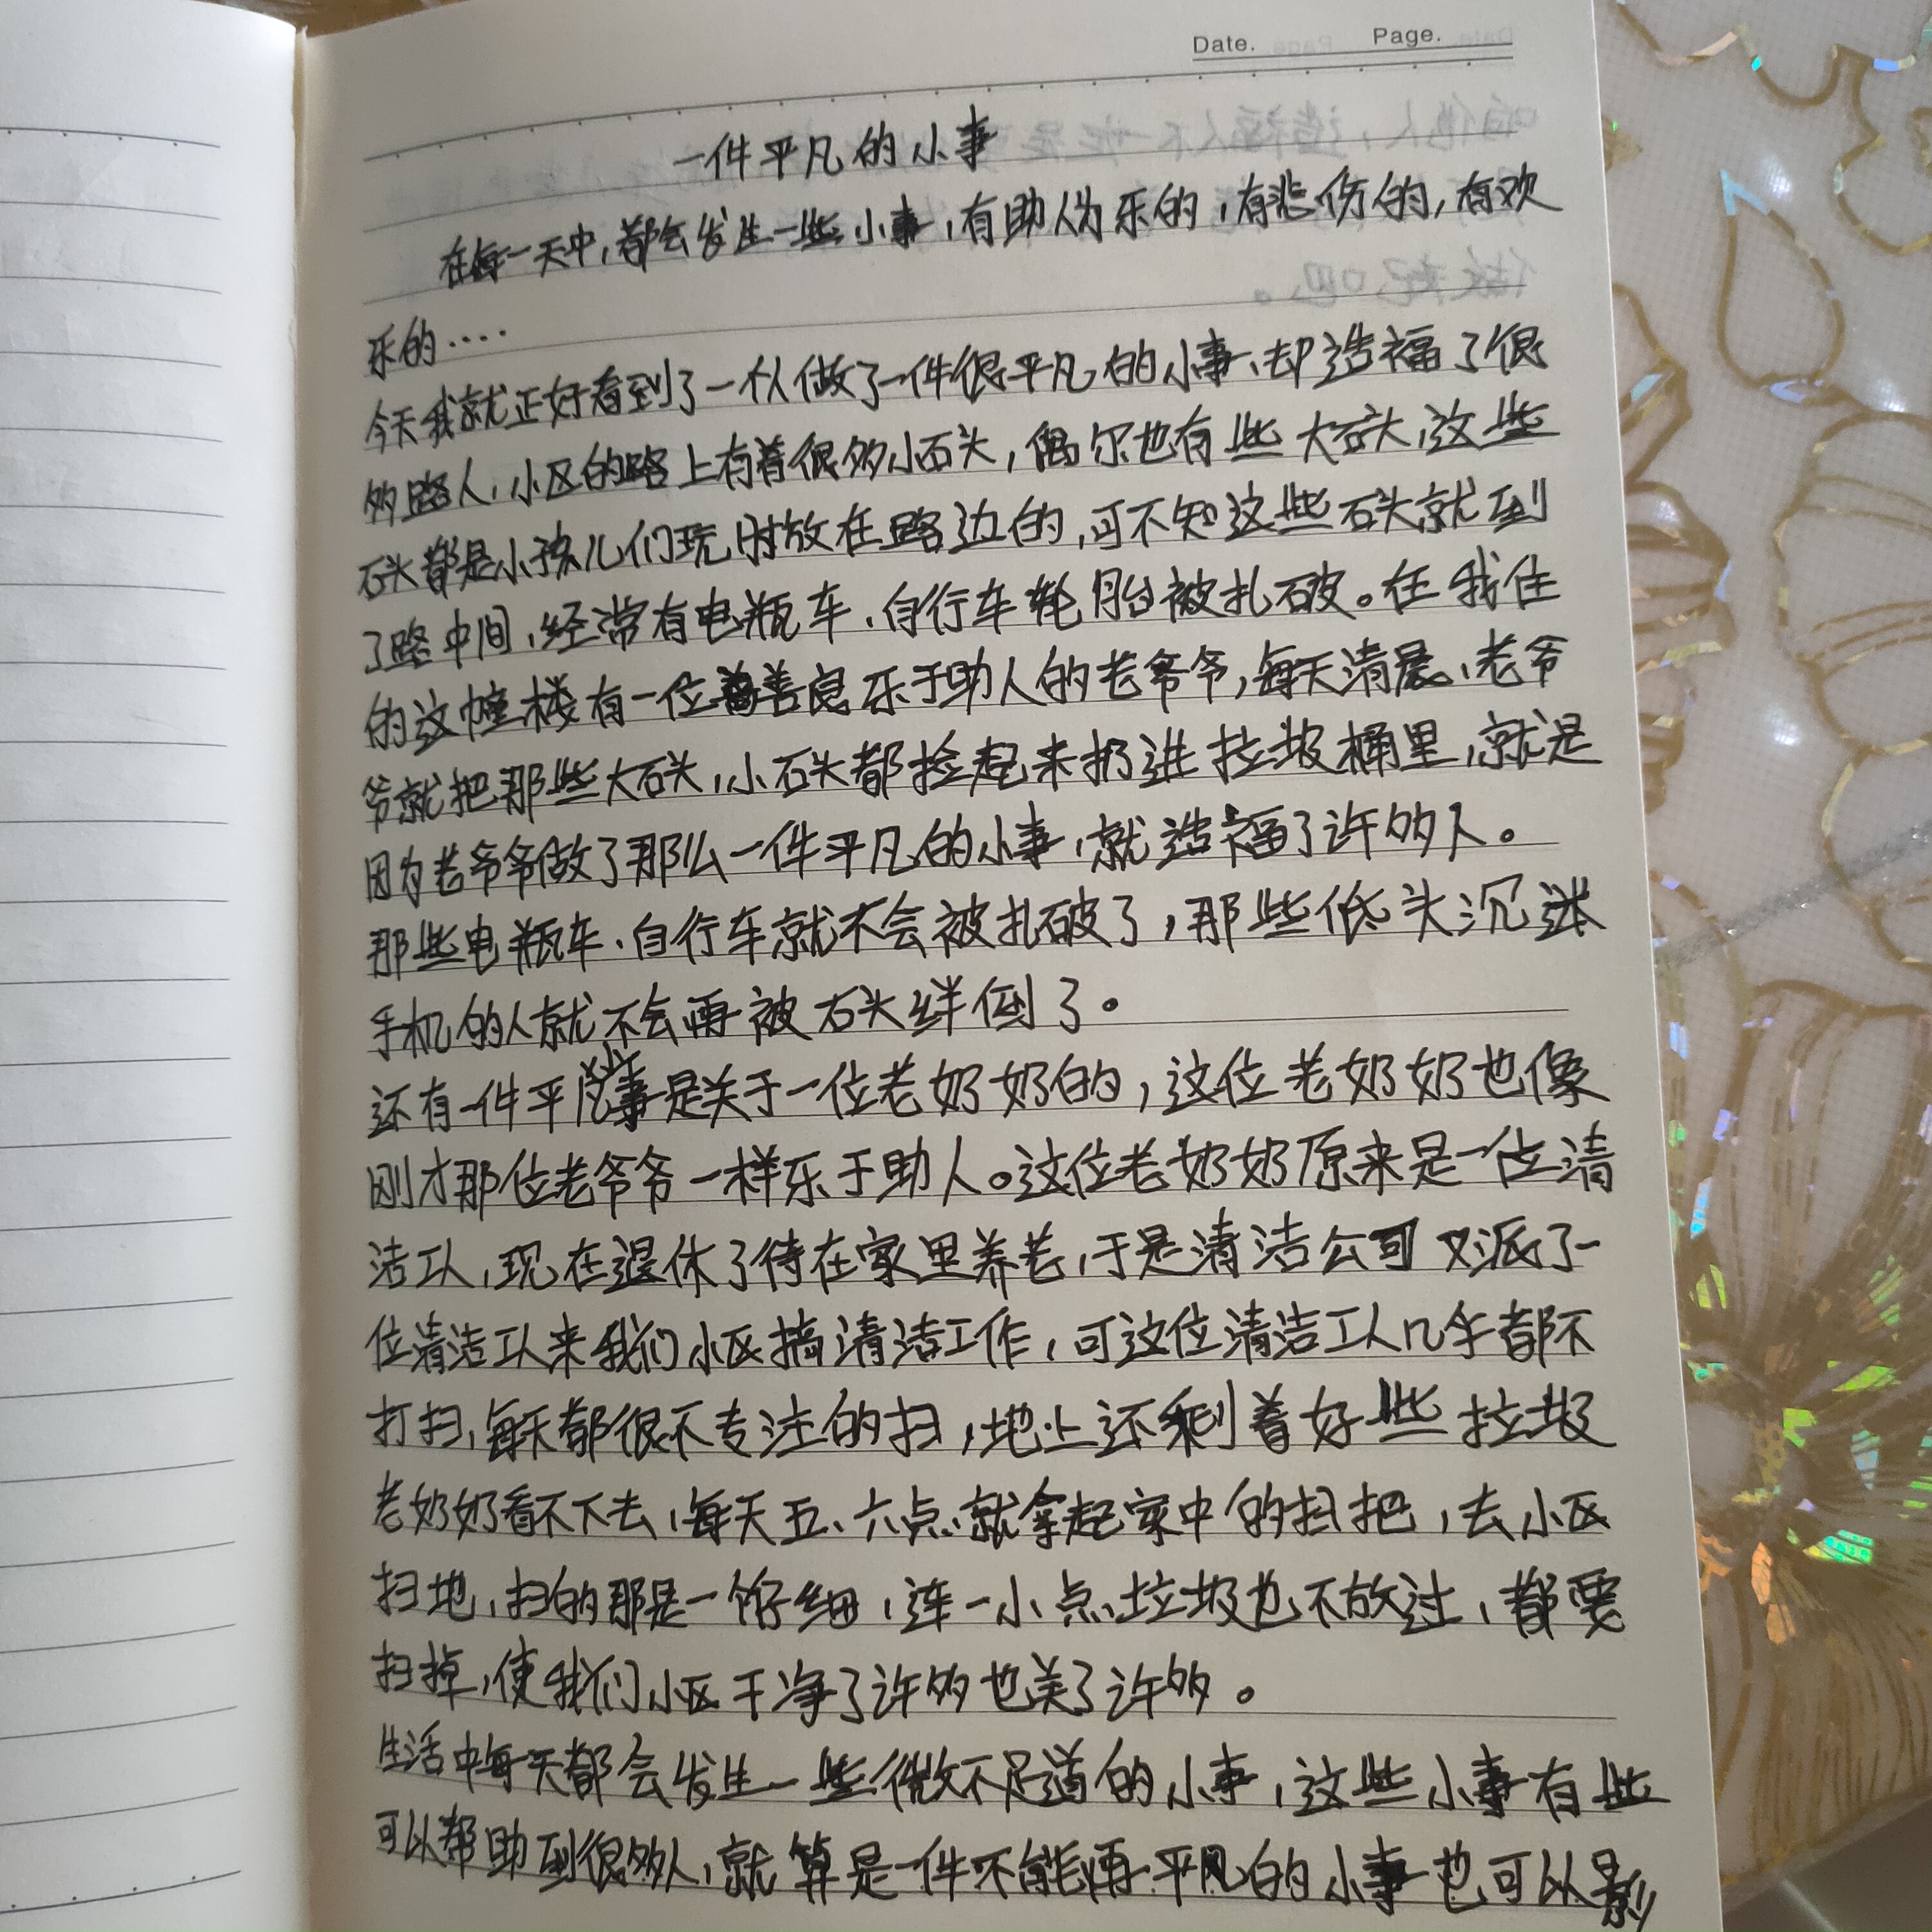 Date. Page.
一件平凡的小事
在每一天中,都会发生一些小事,有助人为乐的,有悲伤的,有欢
乐的····
今天我就正好看到了一个人做了一件很平凡的小事、却造福了很
多路人,小区的路上有着很多小石头,偶尔也有些大石头,这些
石头都是小孩儿们玩时放在路边的,可不知这些石头就到
了路中间,经常有电瓶车、自行车轮胎被扎破。在我住
的这幢楼有一位善良乐于助人的老爷爷,每天清晨、老爷
爷就把那些大石头,小石头都捡起来扔进垃圾桶里,就是
因为老爷爷做了那么一件平凡的小事,就造福了许多人。
那些电瓶车、自行车就不会被扎破了,那些低头沉迷
手机的人就不会再被石头绊倒了。
还有一件平凡小事是关于一位老奶奶的,这位老奶奶也像
刚才那位老爷爷一样乐于助人。这位老奶奶原来是一位清
洁工人,现在退休了待在家里养老,于是清洁公司又派了一
位清洁工人来我们小区搞清洁工作,可这位清洁工人几乎都不
打扫,每天都很不专注的扫,地上还剩着好些垃圾
老奶奶看不下去,每天五、六点就拿起家中的扫把,去小区
扫地,扫的那是一个仔细,连一小点垃圾也不放过,都要
扫掉,使我们小区干净了许多也美了许多。
生活中每天都会发生一些微不足道的小事,这些小事有些
可以帮助到很多人,就算是一件不能再平凡的小事也可以影